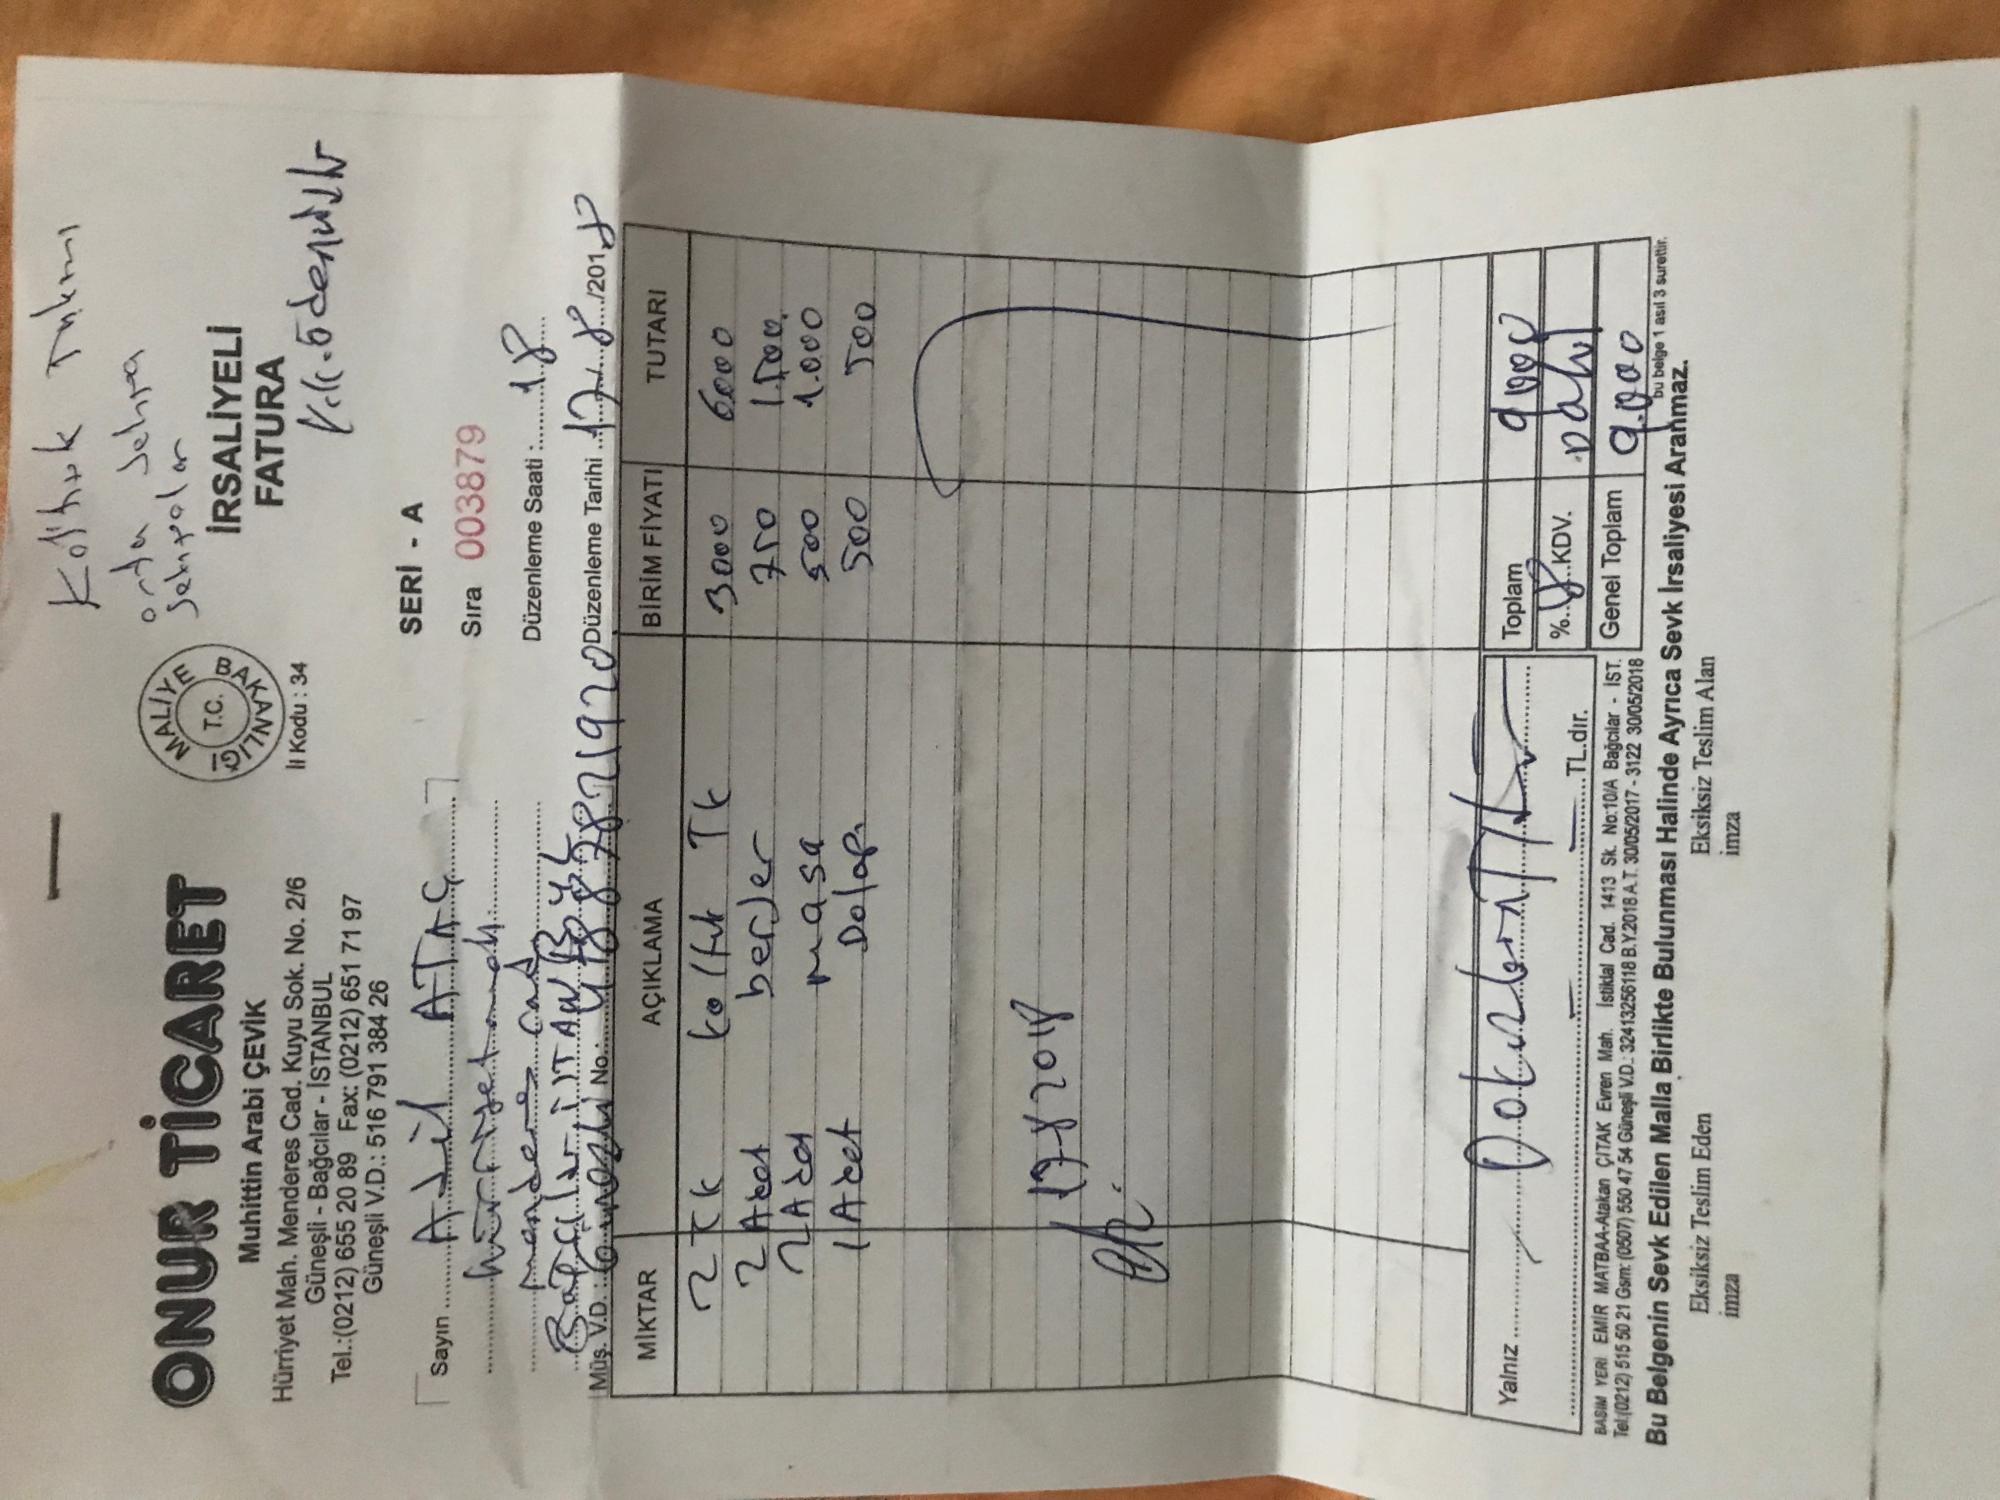 Koltuk Takımı
orta sehpa
sehpalar
ONUR TİCARET
Muhittin Arabi ÇEVİK
Hürriyet Mah. Menderes Cad. Kuyu Sok. No. 2/6
Güneşli - Bağcılar - İSTANBUL
Tel.:(0212) 655 20 89 Fax: (0212) 651 71 97
Güneşli V.D.: 516 791 384 26
MALİYE BAKANLIĞI
T.C.
İl Kodu : 34
İRSALİYELİ
FATURA
ödenmiştir
SERİ - A
Sıra 003879
Düzenleme Saati : 18
Düzenleme Tarihi 17.8./2018
Sayın Adil ATAÇ
hürriyet mah.
menderes cad
Bağcılar İST
Müş. V.D. : Güneşli No.:
MİKTAR AÇIKLAMA BİRİM FİYATI TUTARI
2 Tk koltuk Tk 3000 6000
2 Adet berjer 750 1.500
2 Adet masa 500 1.000
1 Adet Dolap 500 500
17 8 2018
Yalnız DokuzbinTL TL.dır.
Toplam 9000
%.8.KDV. Dahil
Genel Toplam 9.000
BASIM YERİ EMİR MATBAA-Atakan ÇITAK Evren Mah. İstiklal Cad. 1413 Sk. No:10/A Bağcılar - İST.
Tel:(0212) 515 50 21 Gsm: (0507) 550 47 54 Güneşli V.D.: 32413256118 B.Y.2018 A.T. 30/05/2017 - 3122 30/05/2018
bu belge 1 asıl 3 surettir.
Bu Belgenin Sevk Edilen Malla Birlikte Bulunması Halinde Ayrıca Sevk İrsaliyesi Aranmaz.
Eksiksiz Teslim Eden Eksiksiz Teslim Alan
imza imza